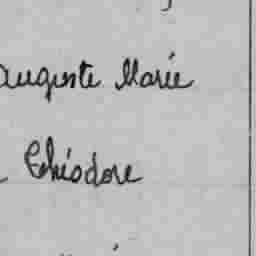 Auguste Marie
Théodore